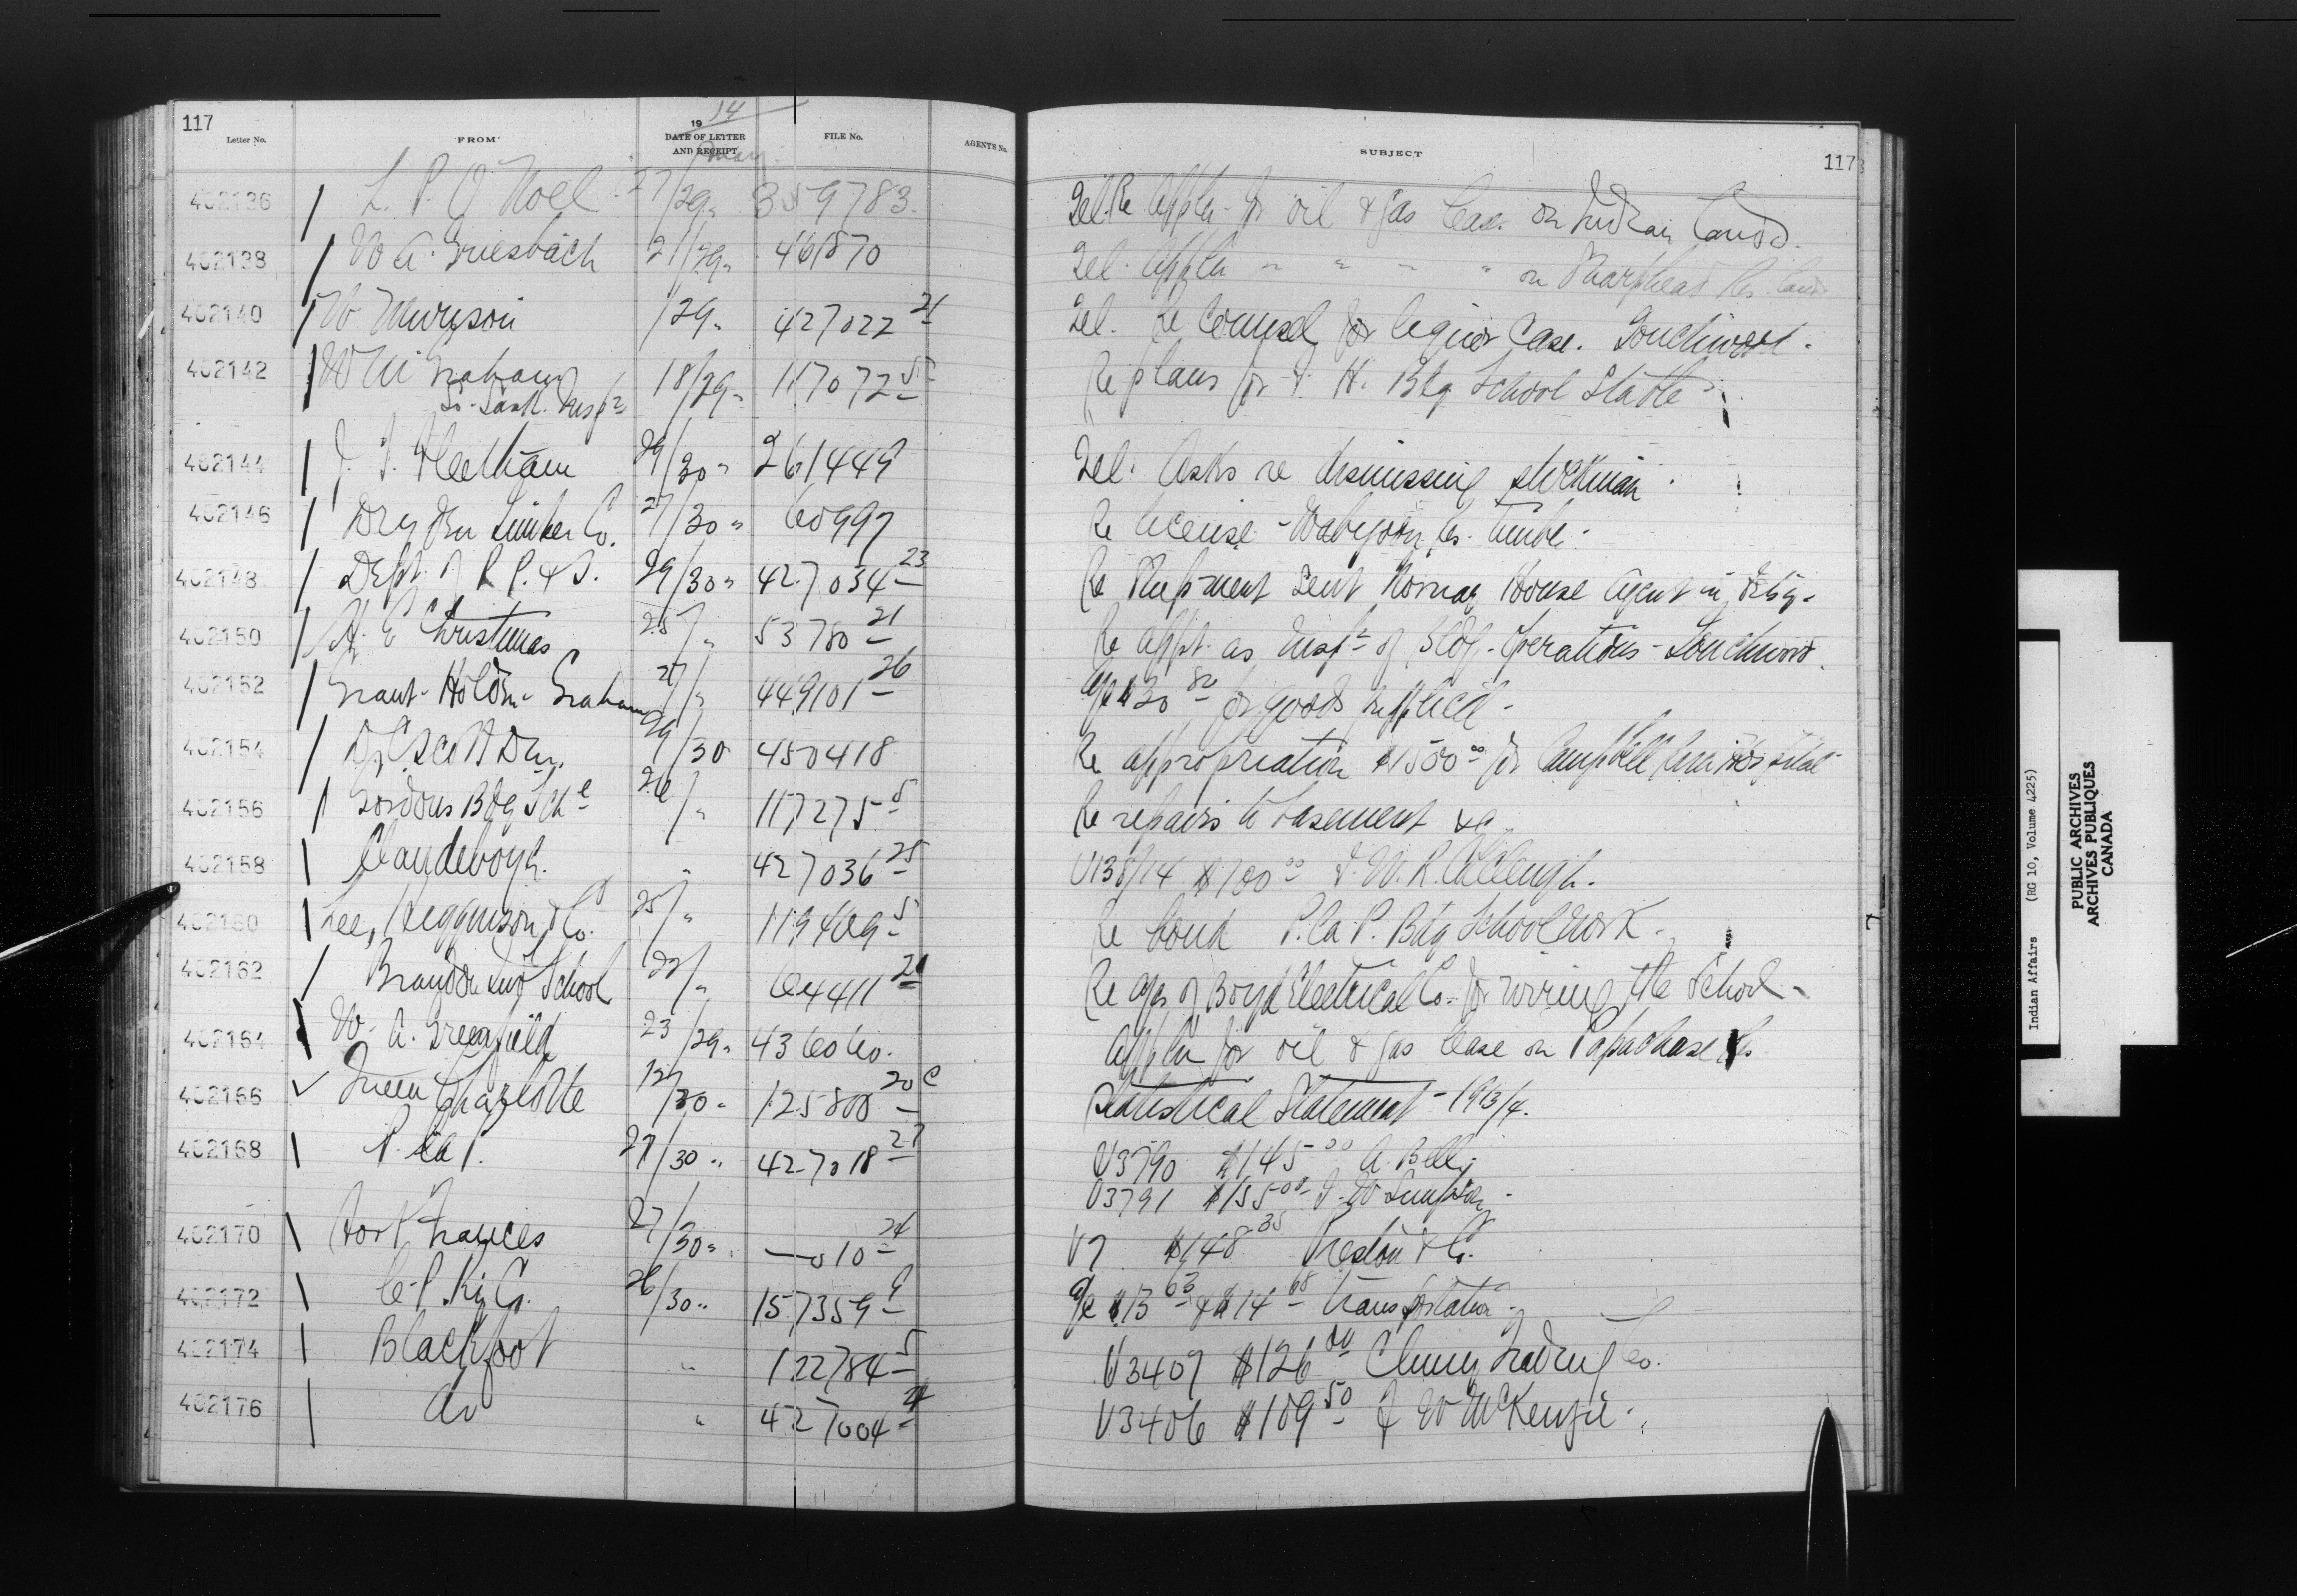 117
1914
Letter No. FROM DATE OF LETTER AND RECEIPT FILE No. AGENT'S No. SUBJECT 117
May
402136 L. P. O Noel 27/29 " 359783. Tel. Re Appln. for oil & gas lease on Indian lands.
402138 W A. Griesbach 21/29 " 461870 Tel. Appln " " " " on Sharphead Res. land
402140 W Murison /29 " 427022 21 Tel. Re Counsel for liquor Case. Touchwood.
402142 W M Graham 18/29 " 117072 5 Re plans for F. H. Bdg School Stable
So. Sask. Insp
402144 J. T. Fleetham 29/30 " 261449 Tel. Asks re dismissing stockman.
402146 Dryden Timber Co. 27/30 " 60997 Re license - Wabigoon Res. timber.
402148 Dept. of R P. & S. 29/30 " 427034 23 Re Shipment sent Norway House Agent in
402150 H. E Christmas 25/ " 53780 21 Re appt. as Insp of Bldg. Operations - Touchwood.
402152 Grant - Holden - Graham 27/ " 449101 26 a/c $20 80 for goods supplied.
402154 D. C Scott 29/30 450418 Re appropriation $1500 00 for Campbell River Hospital
402156 Gordons Bdg Schl 26/ " 117275 5 Re repairs to basement &c
402158 Clandeboye. " 427036 25 V138/14 $100 00 F. W. R. Colcleugh.
402160 Lee, Higginson & Co. 25/ " 119409 5 Re bond P. la P. Bdg School work.
402162 Brandon Ind School 22/ " 64411 21 Re a/cs of Boyd Electrical Co. for wiring the School
402164 W. A. Greenfield 23/29 " 436060. Appln for oil & gas lease on Papachase Res
402166 Queen Charlotte 12/30 " 125800 20 C Statistical Statement - 1913/4.
402168 P. la P. 27/30 " 427018 27 V3790 $145 00 A. Bell.
V3791 $155 00 J. W Simpson.
402170 Fort Frances 27/30 " — 010 24 V7 $148 35 Preston & Co.
402172 C. P. Ry Co. 26/30 " 157359 9 a/c $13 63 & $14 68 transportation.
402174 Blackfoot " 122784 5 V3407 $126 00 Cluny Trading Co.
402176 do " 427004 24 V3406 $109 50 J W McKenzie.
Indian Affairs (RG 10, Volume 4225)
PUBLIC ARCHIVES
ARCHIVES PUBLIQUES
CANADA